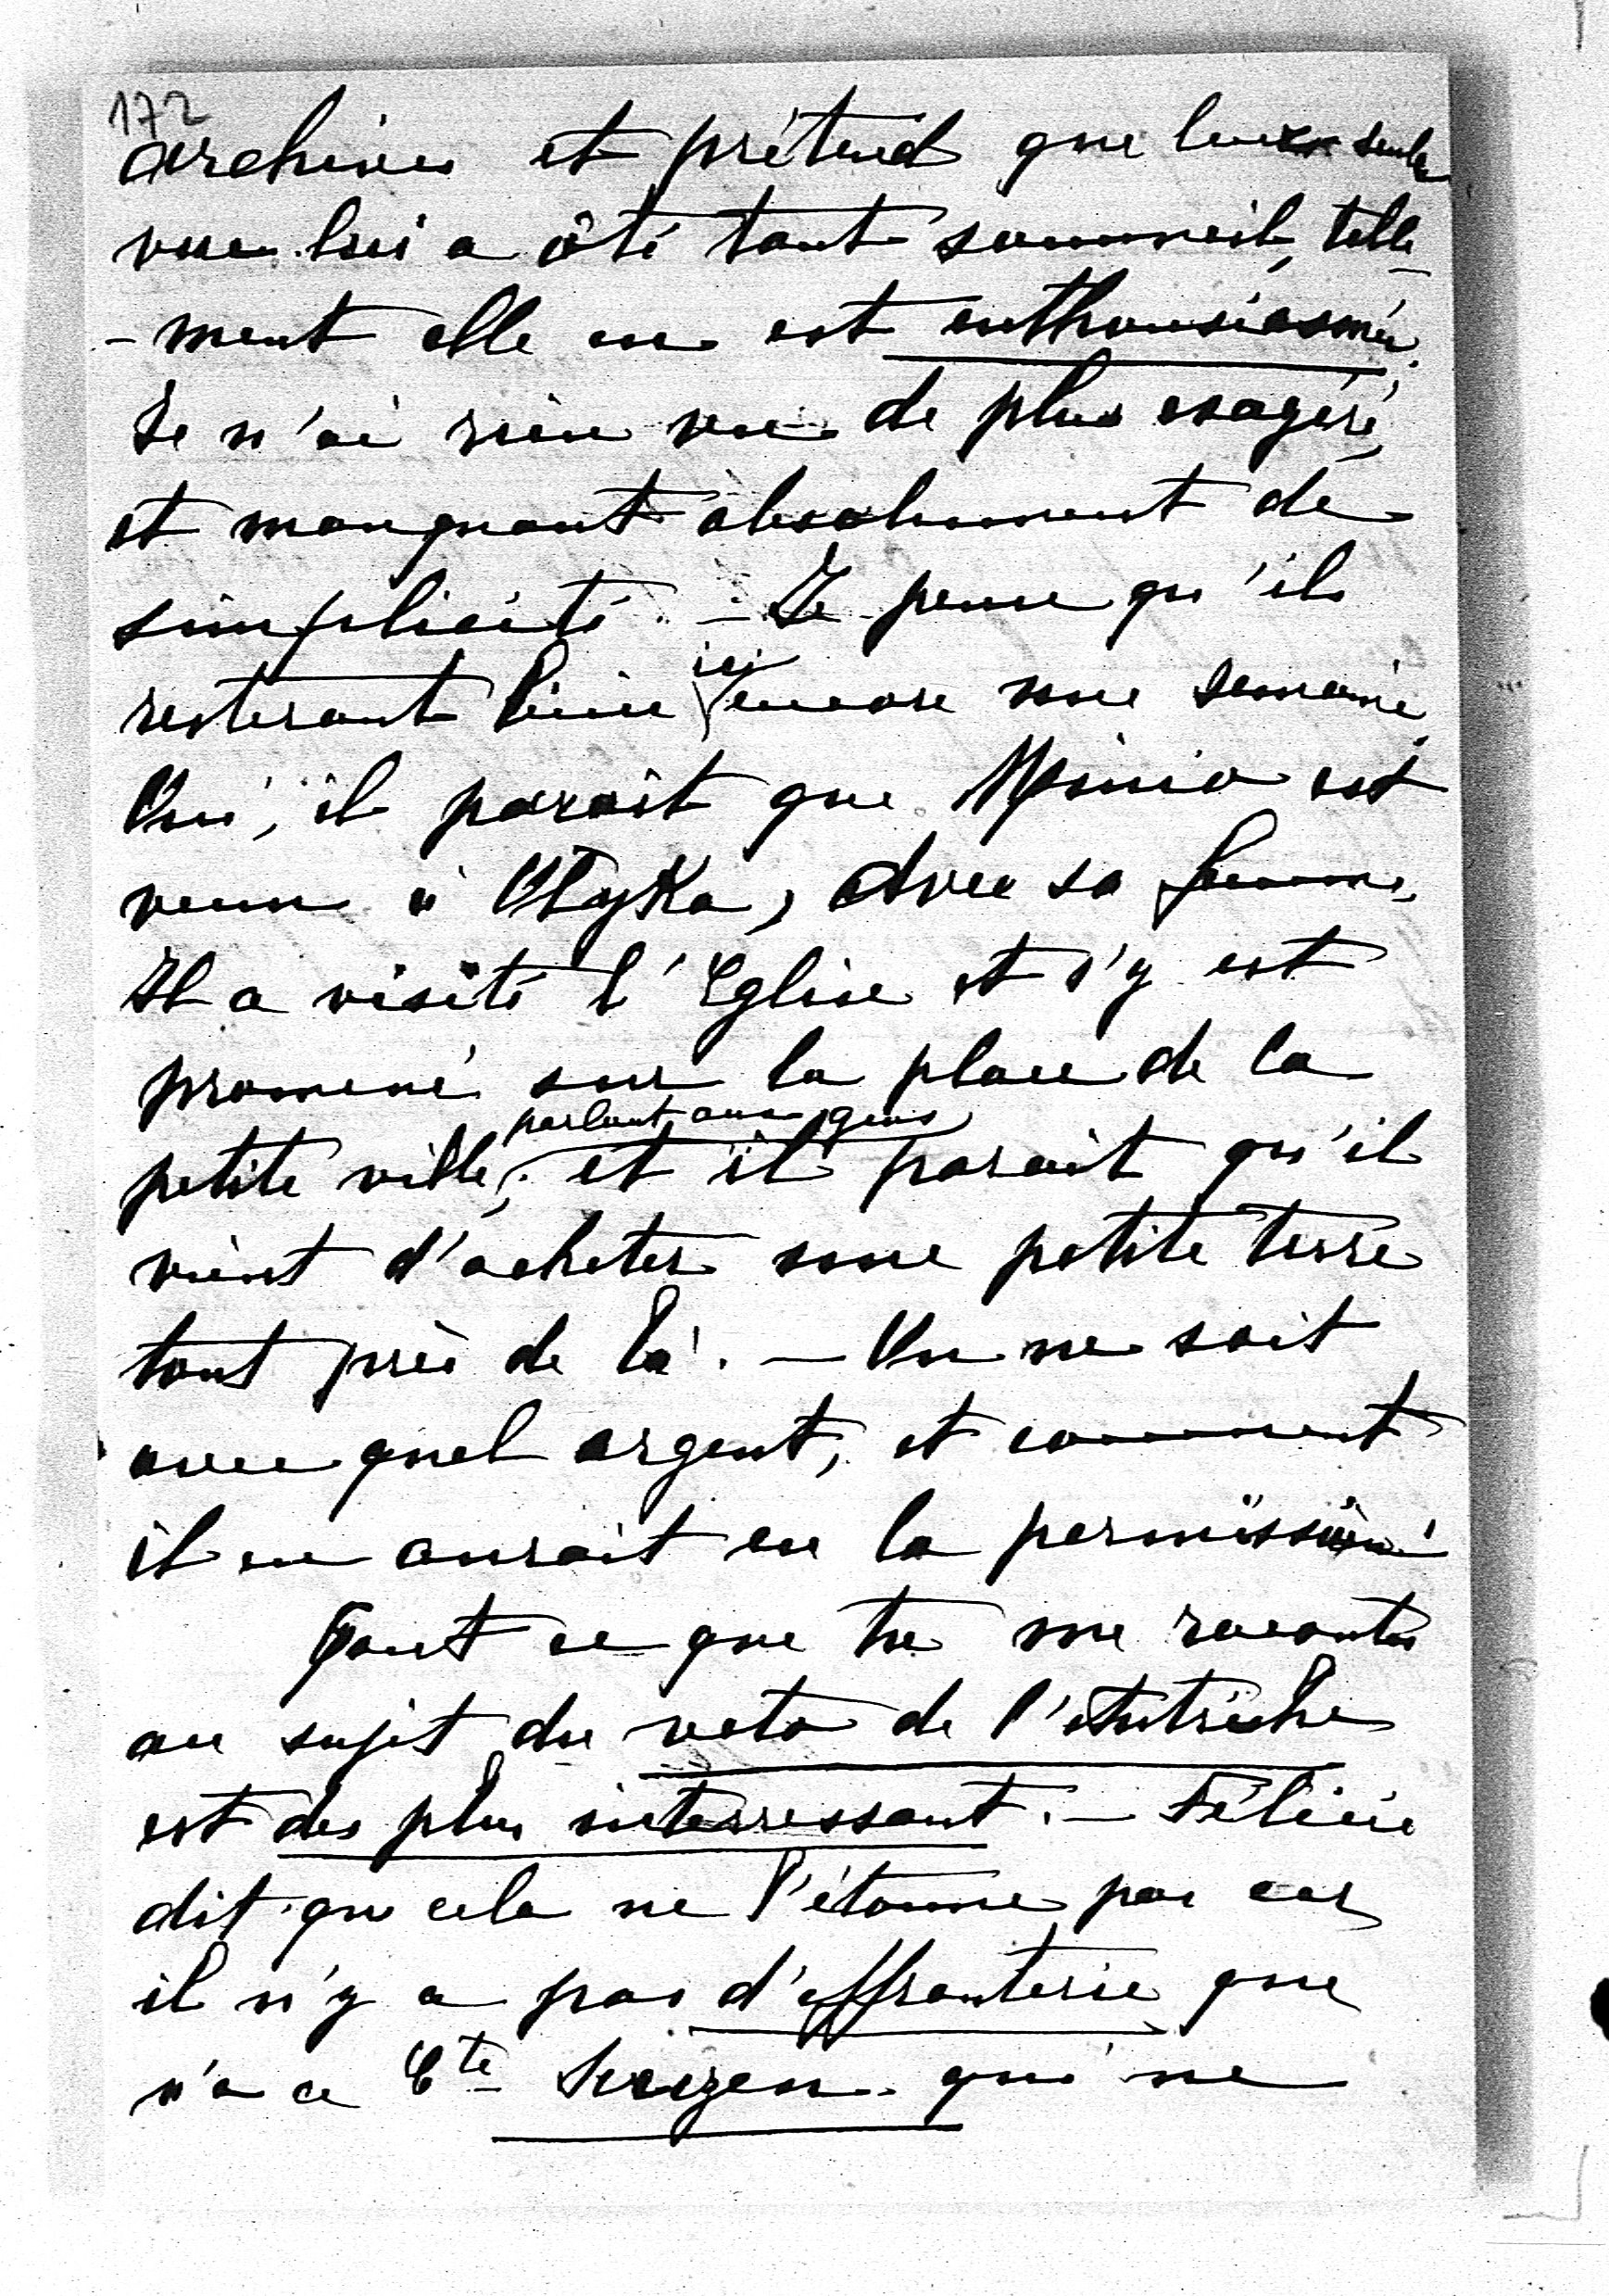 172
archives et prétend que leur seule
vue lui a ôté tout sommeil, telle-
-ment elle en est enthousiasmée.
Je n'ai rien vu de plus exagéré,
et manquant absolument de
simplicité. — Je pense qu'ils
resteront bien ici encore une semaine.
Oui, il parait que Minio est
venu à Olyka, avec sa femme,
Il a visité l'Eglise et s'y est
promené sur la place de la
petite ville, parlant aux gens, et il parait qu'il
vient d'acheter une petite terre
tout près de là. — On ne sait
avec quel argent, et comment
il en aurait eu la permission!
Tout ce que tu me racontes
au sujet du veto de l'Autriche
est des plus interressant. — Félicie
dit que cela ne l'étonne pas car
il n'y a pas d'effronterie que
n'a ce Cte qui ne